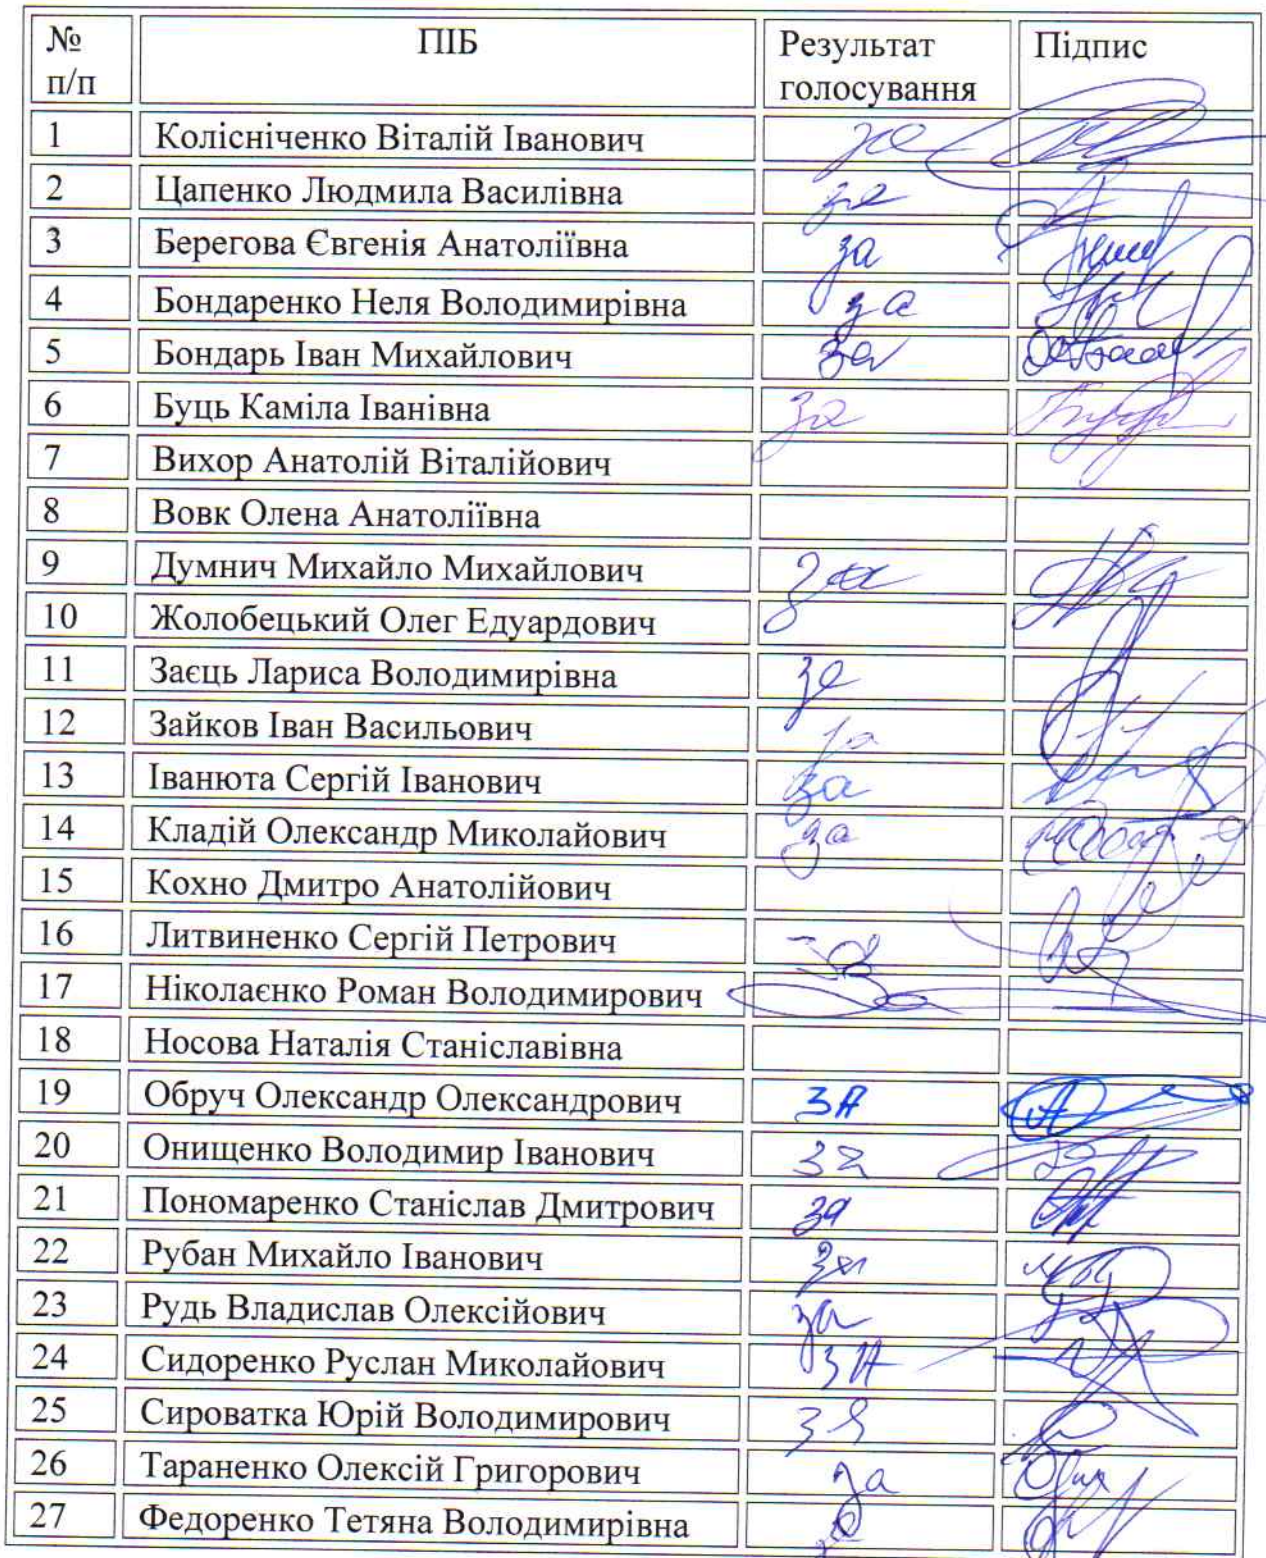 № ПІБ Результат Підпис
п/п голосування
1 Колісніченко Віталій Іванович за
2 Цапенко Людмила Василівна за
3 Берегова Євгенія Анатоліївна за
4 Бондаренко Неля Володимирівна за
5 Бондарь Іван Михайлович за
6 Буць Каміла Іванівна за
7 Вихор Анатолій Віталійович
8 Вовк Олена Анатоліївна
9 Думнич Михайло Михайлович за
10 Жолобецький Олег Едуардович
11 Заєць Лариса Володимирівна за
12 Зайков Іван Васильович за
13 Іванюта Сергій Іванович за
14 Кладій Олександр Миколайович за
15 Кохно Дмитро Анатолійович
16 Литвиненко Сергій Петрович за
17 Ніколаєнко Роман Володимирович за
18 Носова Наталія Станіславівна
19 Обруч Олександр Олександрович ЗА
20 Онищенко Володимир Іванович за
21 Пономаренко Станіслав Дмитрович за
22 Рубан Михайло Іванович за
23 Рудь Владислав Олексійович за
24 Сидоренко Руслан Миколайович ЗА
25 Сироватка Юрій Володимирович за
26 Тараненко Олексій Григорович за
27 Федоренко Тетяна Володимирівна за